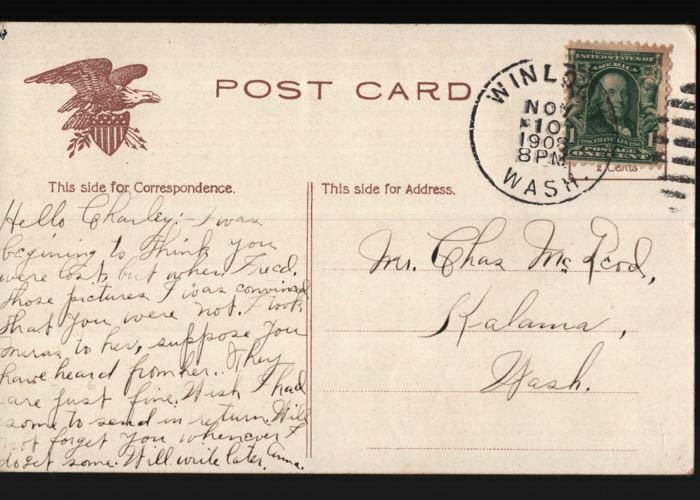 POST CARD
WINLO
NOV
10
1908
8 PM
WASH.
UNITED STATES OF
AMERICA
1
1
POSTAGE
ONE CENT
2 Cents
This side for Correspondence.
This side for Address.
Hello Charley:- I was
begining to think you
were lost, but when I recd.
those pictures I was convinced
that you were not. I took
to her, suppose you
have heard from her. They
are just fine. Wish I had
some to send in return. Will
not forget you whenever I
do get some. Will write later, Anna.
Mr. Chas McLeod,
Kalama,
Wash.